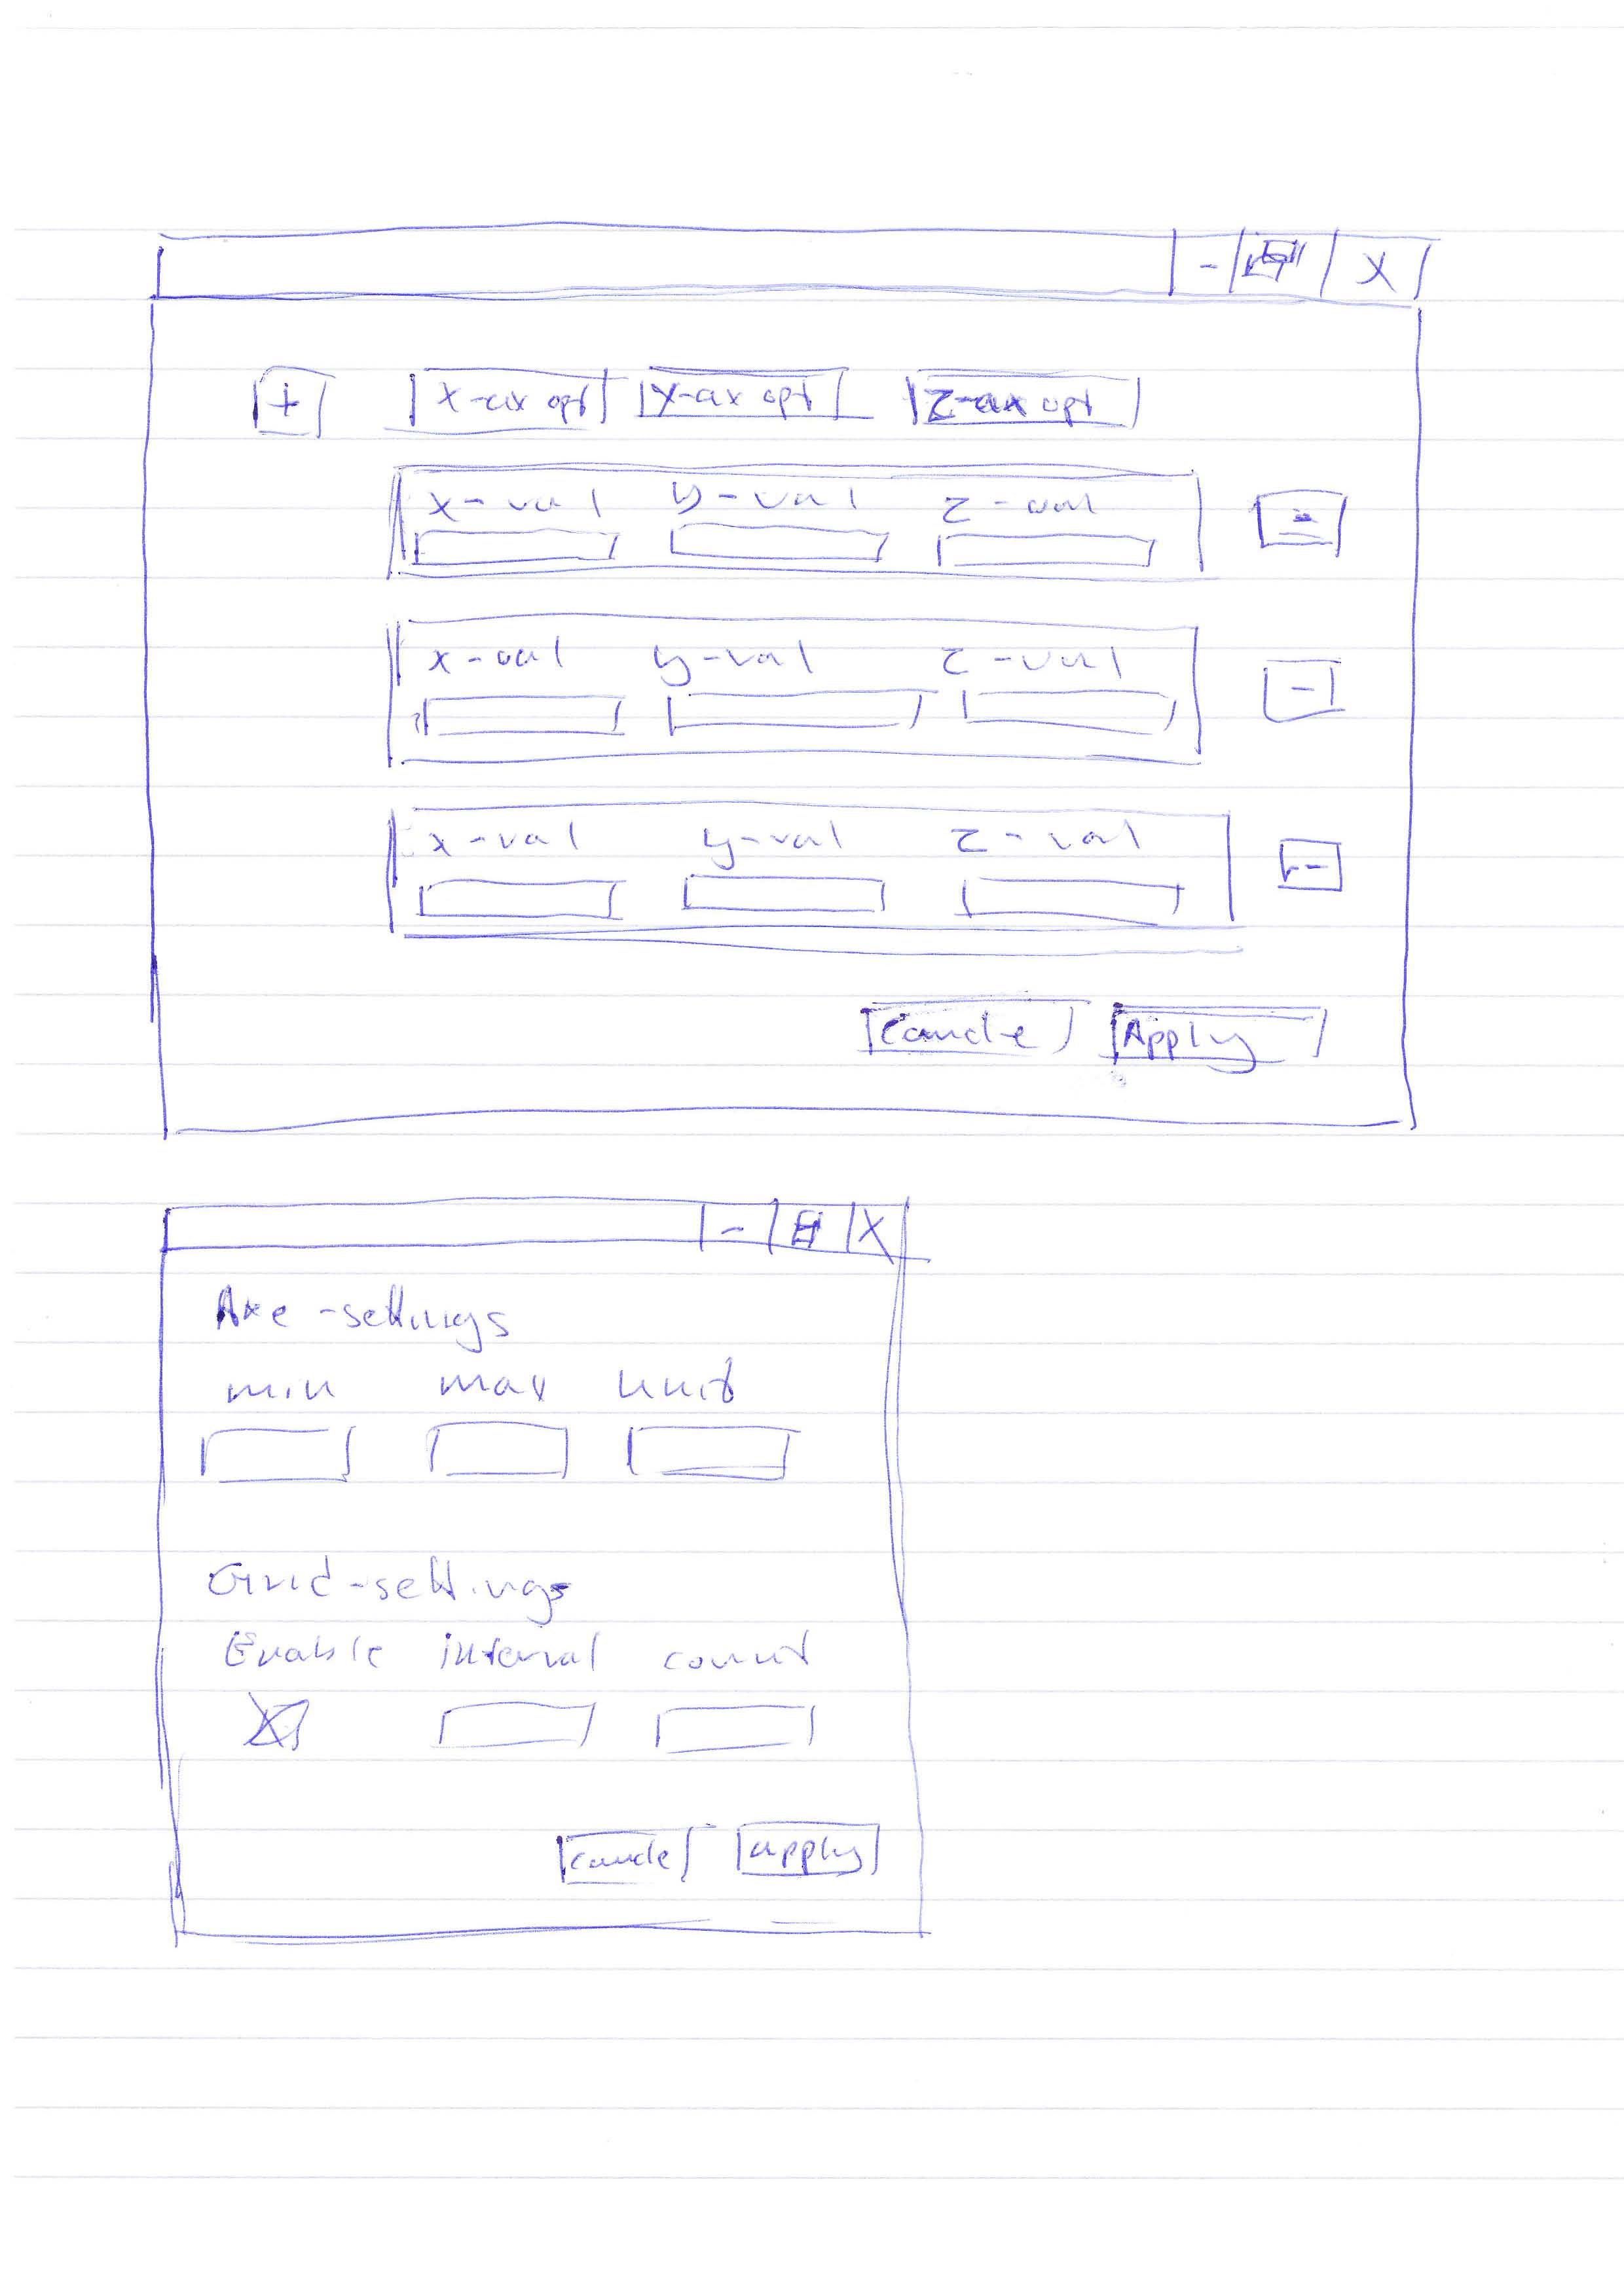 - X
+ X-ax opt Y-ax opt Z-ax opt
x-val y-val z-val -
x-val y-val z-val -
x-val y-val z-val -
Cancle Apply
- X
Axe-settings
min max unit
Grid-settings
Enable interval count
cancle apply